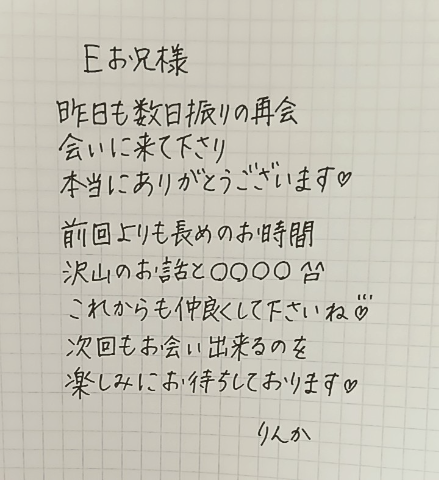 Eお兄様
昨日も数日振りの再会
会いに来て下さり
本当にありがとうございます♡
前回よりも長めのお時間
沢山のお話と○○○○ ^^
これからも仲良くして下さいね♡
次回もお会い出来るのを
楽しみにお待ちしております♡
りんか